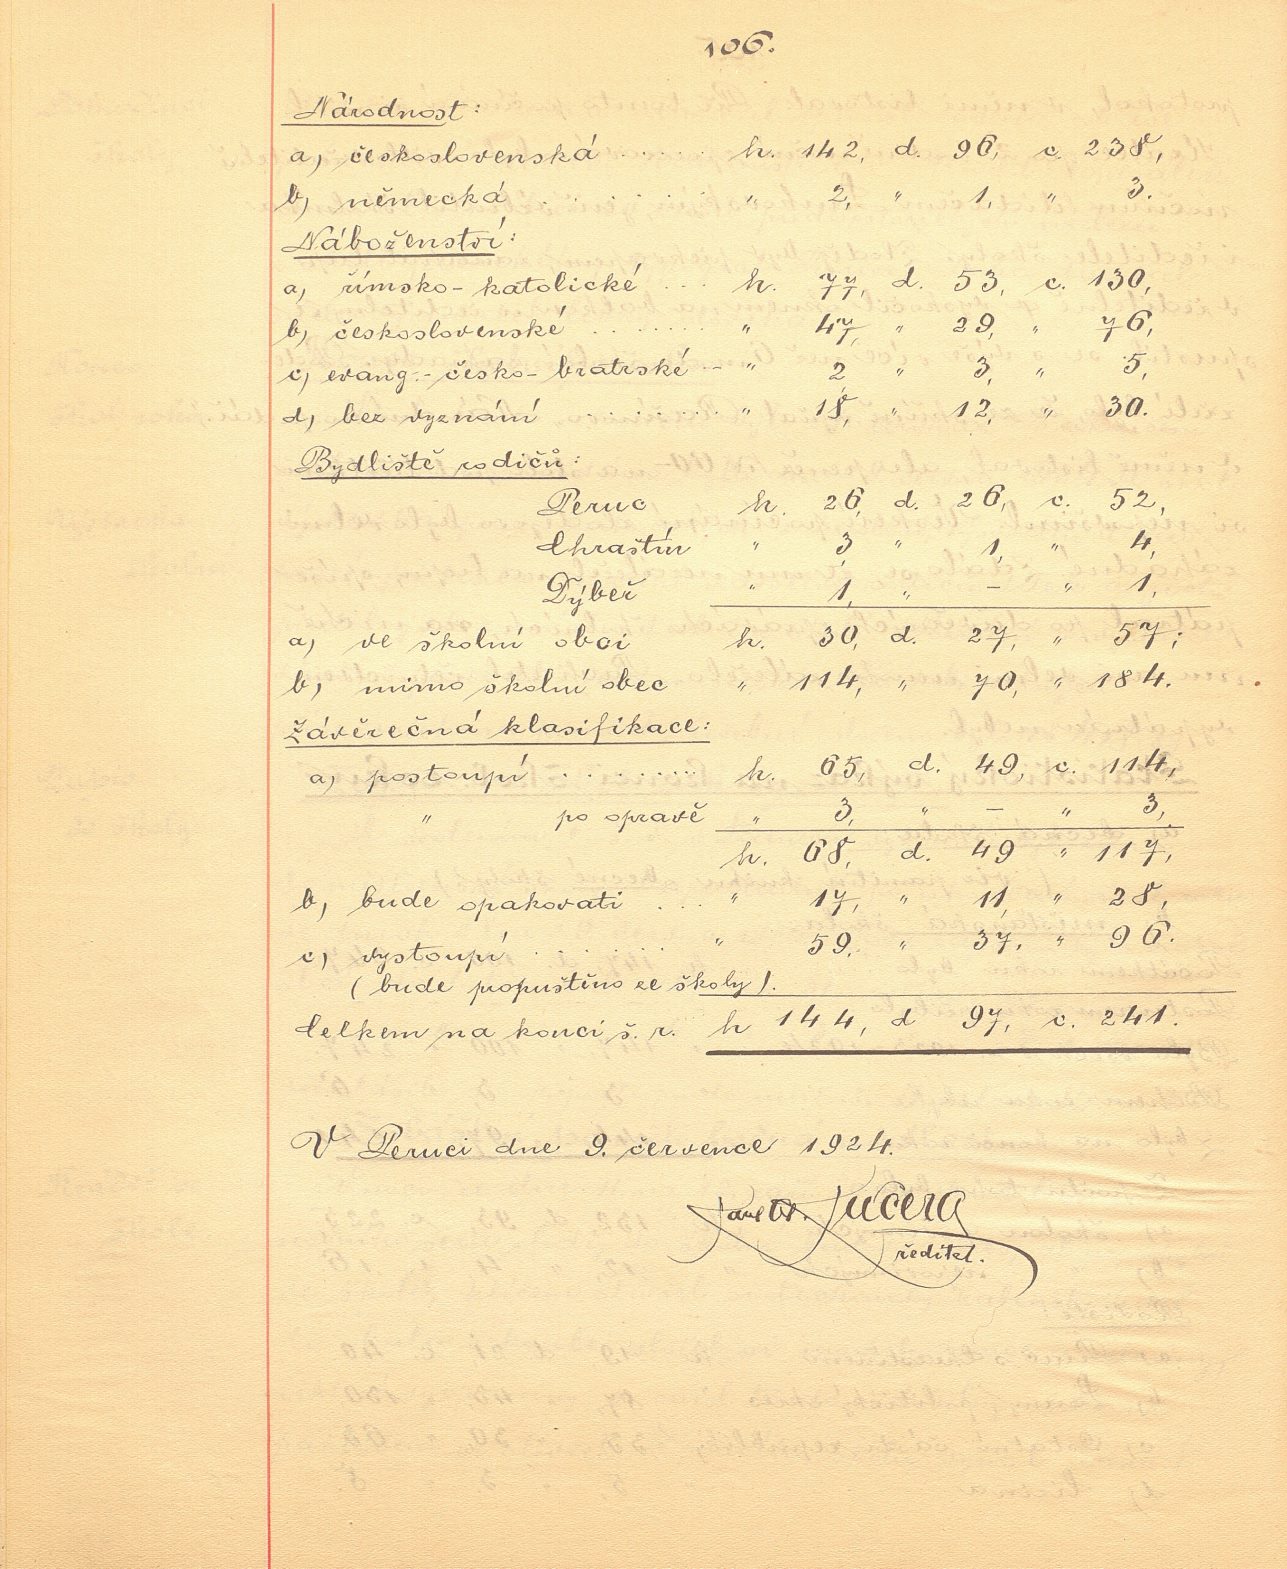 106.
Národnost:
a) československá ...... h. 142, d. 96, c. 238,
b) německá ....... " 2, " 1, " 3.
Náboženství:
a) římsko-katolické ... h. 77, d. 53, c. 130,
b) československé ....... " 47, " 29, " 76,
c) evang.-česko-bratrské - " 2 " 3, " 5,
d) bez vyznání ........ " 18, " 12, " 30.
Bydliště rodičů:
Peruc h. 26, d. 26, c. 52,
Chrastín " 3, " 1, " 4,
Dýbeř " 1, " - " 1,
a) ve školní obci h. 30, d. 27, " 57;
b) mimo školní obec " 114, " 70, " 184.
Závěrečná klasifikace:
a) postoupí ........ h. 65, d. 49, c. 114,
" po opravě " 3, " - " 3,
h. 68, d. 49 " 117,
b) bude opakovati ... " 17, " 11, " 28,
c) vystoupí ...... " 59. " 37, " 96.
(bude propuštěno ze školy).
Celkem na konci š. r. h 144, d 97, c. 241.
V Peruci dne 9. července 1924.
Kučera
ředitel.